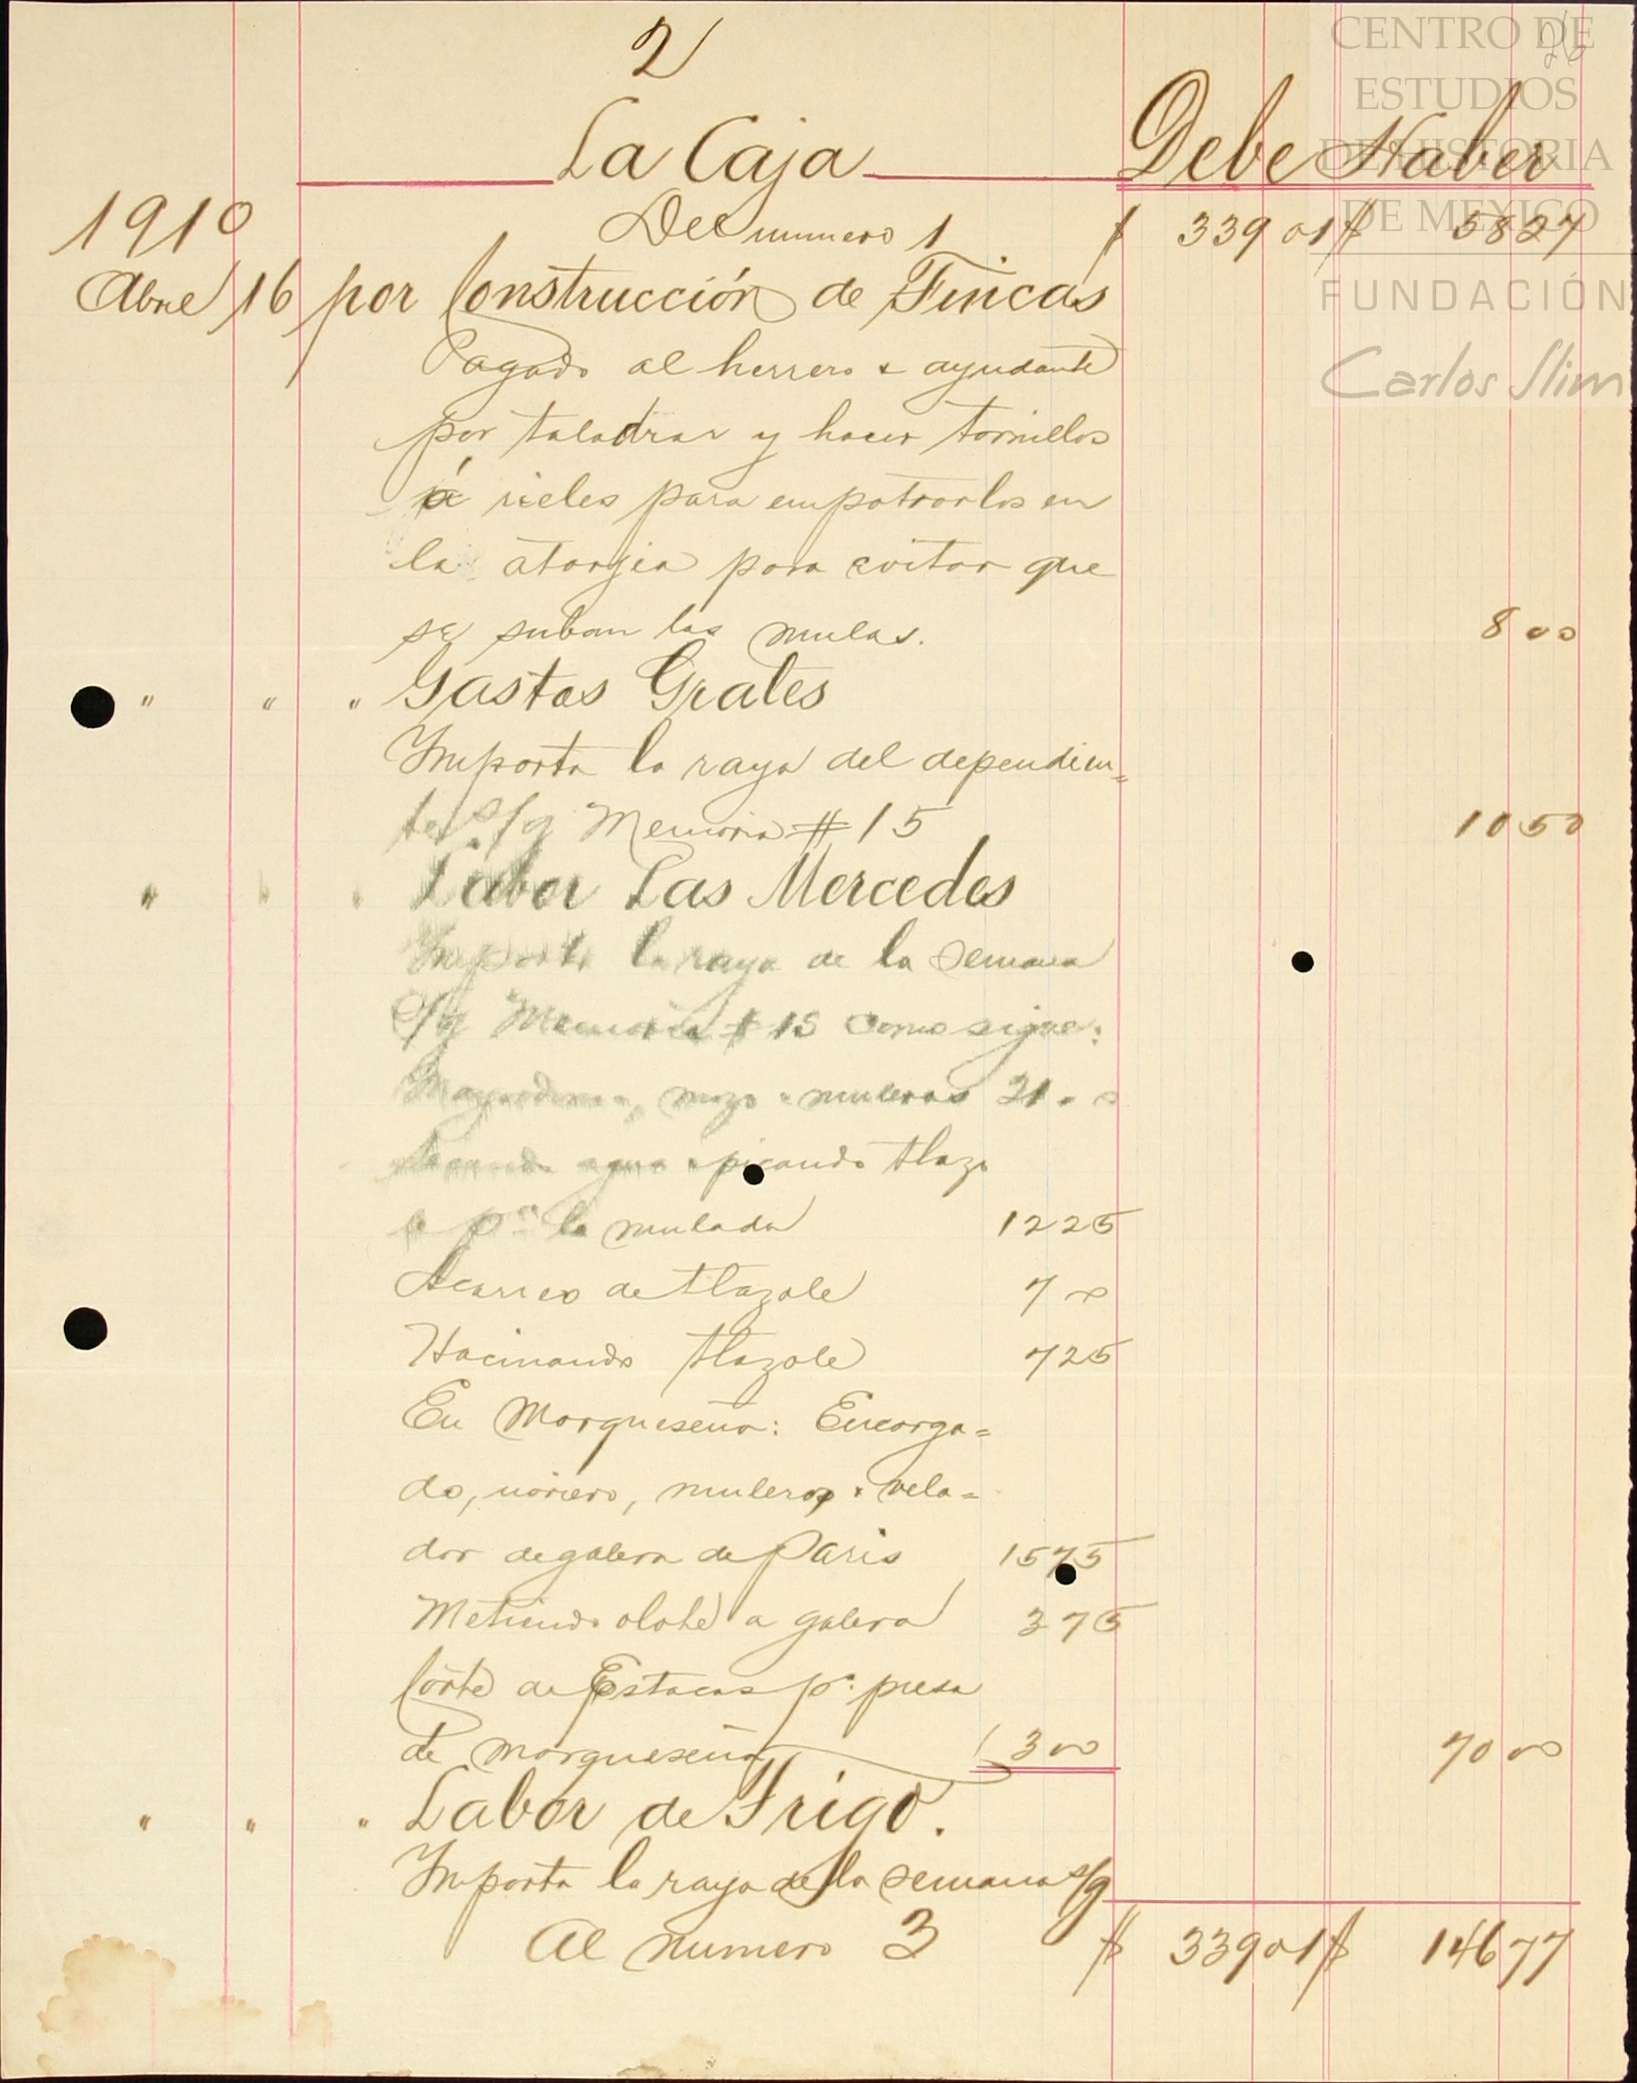 2
26
CENTRO DE
ESTUDIOS
DE HISTORIA
DE MEXICO
FUNDACIÓN
Carlos Slim
La Caja Debe Haber
1910 Del numero 1 $ 339 01 $ 58 27
Abril 16 por Construcción de Fincas
Pagado al herrero & ayudante
por taladrar y hacer tornillos
á rieles para empotrarlos en
la atarjea para evitar que
se suban las mulas. 8 00
" " " Gastos Grales
Importa la raya del dependien=
te S/g Memoria # 15 10 50
" " " Labor Las Mercedes
Importa la raya de la semana
S/g Memoria # 15 como sigue:
Mayordomo, mozo & muleros 21 00
agua & picando tlazo
le pa la mulada 12 25
Acarreo de tlazole 7 00
Hacinando tlazole 7 25
En Marqueseña: Encarga=
do, noriero, muleros & vela=
dor de galera de Paris 15 75
Metiendo olote a galera 3 75
Corte de Estacas pa presa
de marqueseña 3 00 70 00
" " " Labor de Trigo.
Importa la raya de la semana s/g
Al numero 3 $ 339 01 $ 146 77